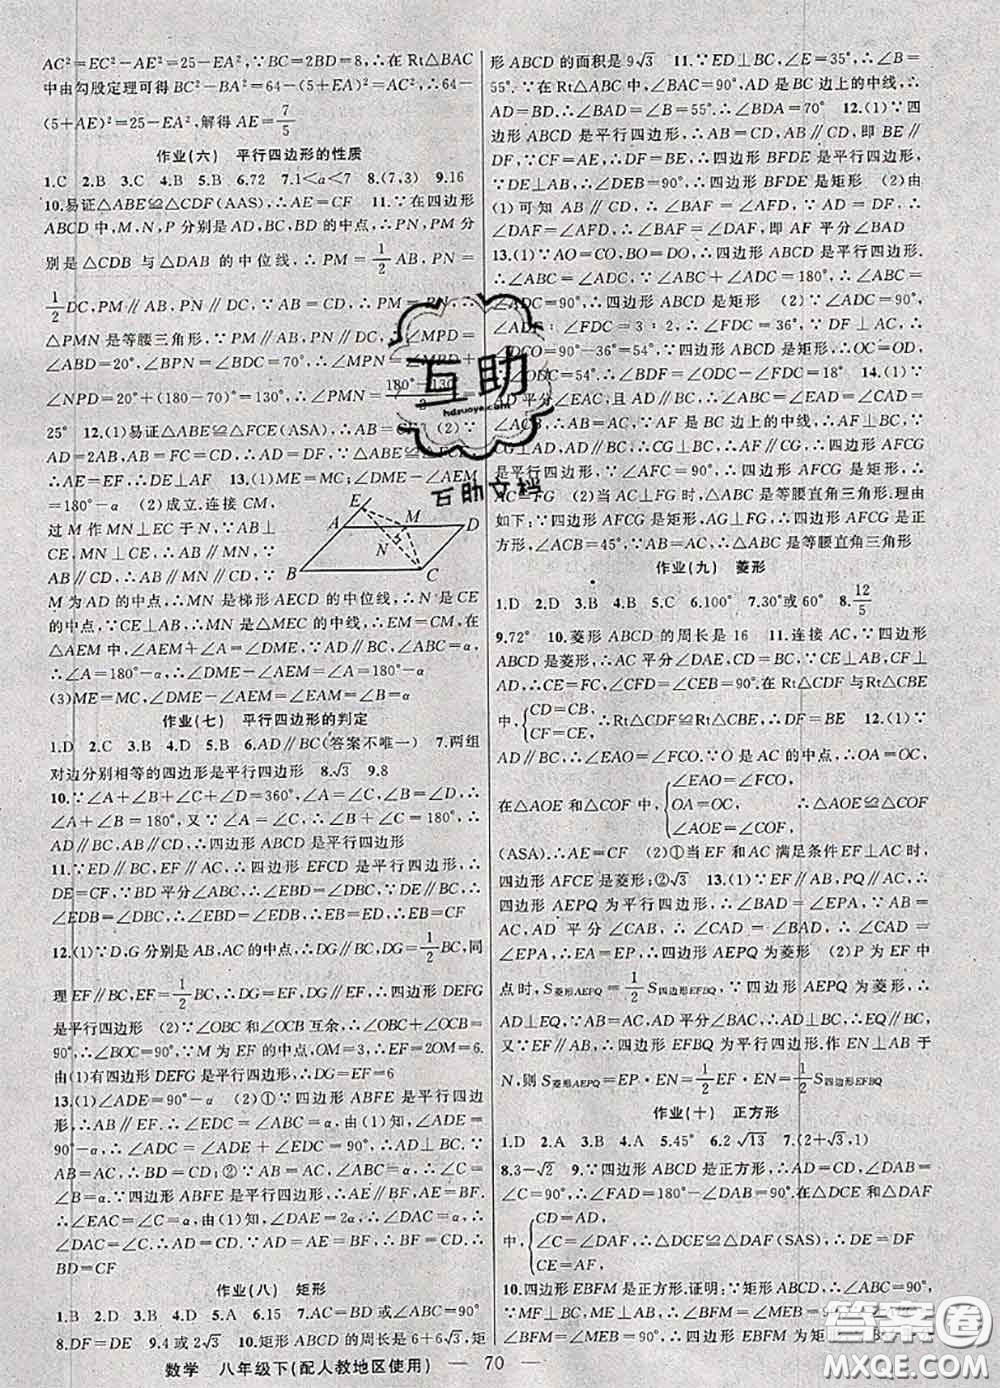 AC²=EC²−AE²=25−EA²,∵BC=2BD=8,∴在Rt△BAC
中由勾股定理可得BC²−BA²=64−(5+AE)²=AC²,∴64−
(5+AE)²=25−EA²,解得AE=7/5
作业(六) 平行四边形的性质
1.C 2.B 3.C 4.B 5.B 6.72 7.1<a<7 8.(7,3) 9.16
10.易证△ABE≌△CDF(AAS),∴AE=CF 11.∵在四边形
ABCD中,M、N、P分别是AD,BC,BD的中点,∴PN,PM分
别是△CDB与△DAB的中位线,∴PM=1/2AB,PN=
1/2DC,PM∥AB,PN∥DC,∵AB=CD,∴PM=PN,∴
△PMN是等腰三角形,∵PM∥AB,PN∥DC,∴∠MPD=
∠ABD=20°,∠BPN=∠BDC=70°,∴∠MPN=∠MPD+
∠NPD=20°+(180−70)°=130°,∴∠PMN=(180°−130°)/2=
25° 12.(1)易证△ABE≌△FCE(ASA),∴AB=CF (2)∵
AD=2AB,AB=FC=CD,∴AD=DF,∵△ABE≌△FCE,
∴AE=EF,∴DE⊥AF 13.(1)ME=MC;∠DME−∠AEM
=180°−α (2)成立.连接CM,
过M作MN⊥EC于N,∵AB⊥
CE,MN⊥CE,∴AB∥MN,∵
AB∥CD,∴AB∥MN∥CD,∵
M为AD的中点,∴MN是梯形AECD的中位线,∴N是CE
的中点,∵MN⊥CE,∴MN是△MEC的中线,∴EM=CM,在
△AEM中,∠A=180°−α,∴∠DME−∠AEM=∠A=180°−α
(3)ME=MC,∠DME−∠AEM=∠A=180°−α
作业(七) 平行四边形的判定
1.D 2.C 3.B 4.D 5.B 6.AD∥BC(答案不唯一) 7.两组
对边分别相等的四边形是平行四边形 8.√3 9.8
10.∵∠A+∠B+∠C+∠D=360°,∠A=∠C,∠B=∠D,∴
∠A+∠B=180°,又∵∠A=∠C,∴∠B+∠C=180°,∴
AD∥BC,AB∥CD,∴四边形ABCD是平行四边形
11.∵ED∥BC,EF∥AC,∴四边形EFCD是平行四边形,∴
DE=CF,∵BD平分∠ABC,∴∠EBD=∠DBC,∵DE∥BC,∴
∠EDB=∠DBC,∴∠EBD=∠EDB,∴EB=ED,∴EB=CF
12.(1)∵D,G分别是AB,AC的中点,∴DG∥BC,DG=1/2BC,同
理EF∥BC,EF=1/2BC,∴DG=EF,DG∥EF,∴四边形DEFG
是平行四边形 (2)∵∠OBC和∠OCB互余,∴∠OBC+∠OCB=
90°,∴∠BOC=90°,∵M为EF的中点,OM=3,∴EF=2OM=6.
由(1)有四边形DEFG是平行四边形,∴DG=EF=6
13.(1)∠ADE=90°−α (2)①∵四边形ABFE是平行四边
形,∴AB∥EF,∴∠EDC=∠ABC=α,由(1)知,∠ADE=
90°−α,∴∠ADC=∠ADE+∠EDC=90°,∴AD⊥BC,∵
AB=AC,∴BD=CD;②∵AB=AC,∠ABC=α,∴∠C=
∠B=α.∵四边形ABFE是平行四边形,∴AE∥BF,AE=BF,∴
∠EAC=∠C=α,由(1)知,∠DAE=2α,∴∠DAC=α,∴
∠DAC=∠C,∴AD=CD,∵AD=AE=BF,∴BF=CD,∴
BD=CF
作业(八) 矩形
1.B 2.D 3.B 4.D 5.A 6.15 7.AC=BD或∠ABC=90°
8.DF=DE 9.4或2√3 10.矩形ABCD的周长是6+6√3,矩
形ABCD的面积是9√3 11.∵ED⊥BC,∠E=35°,∴∠B=
55°.在Rt△ABC中,∠BAC=90°,AD是BC边上的中线,∴
AD=BD=DC,∴∠B=∠BAD=55°,∴∠BDA=70° 12.(1)∵四
边形ABCD是平行四边形,∴AB∥CD,AB=CD,即BE∥
DF,∵CF=AE,∴BE=DF,∴四边形BFDE是平行四边形,
∵DE⊥AB,∴∠DEB=90°,∴四边形BFDE是矩形 (2)由
(1)可知AB∥CD,∴∠BAF=∠AFD,∵AD=DF,∴
∠DAF=∠AFD,∴∠BAF=∠DAF,即AF平分∠BAD
13.(1)∵AO=CO,BO=DO,∴四边形ABCD是平行四边形,
∴∠ABC=∠ADC,∵∠ABC+∠ADC=180°,∴∠ABC=
∠ADC=90°,∴四边形ABCD是矩形 (2)∵∠ADC=90°,
∠ADF:∠FDC=3:2,∴∠FDC=36°,∵DF⊥AC,∴
∠DCO=90°−36°=54°,∵四边形ABCD是矩形,∴OC=OD,
∴∠ODC=54°,∴∠BDF=∠ODC−∠FDC=18° 14.(1)∵
AD平分∠EAC,且AD∥BC,∴∠ABC=∠EAD=∠CAD=
∠ACB,∴AB=AC,AF是BC边上的中线,∴AF⊥BC,
∵CG⊥AD,AD∥BC,∴CG⊥BC,∴AF∥CG,∴四边形AFCG
是平行四边形,∵∠AFC=90°,∴四边形AFCG是矩形,∴
AC=FG (2)当AC⊥FG时,△ABC是等腰直角三角形.理由
如下:∵四边形AFCG是矩形,AG⊥FG,∴四边形AFCG是正
方形,∠ACB=45°,∵AB=AC,∴△ABC是等腰直角三角形
作业(九) 菱形
1.D 2.D 3.B 4.B 5.C 6.100° 7.30°或60° 8.12/5
9.72° 10.菱形ABCD的周长是16 11.连接AC,∵四边形
ABCD是菱形,∴AC平分∠DAE,CD=BC,∵CE⊥AB,CF⊥AD,
∴CE=FC,∠CFD=∠CEB=90°.在Rt△CDF与Rt△CBE
中,{CD=CB,CF=CE,∴Rt△CDF≌Rt△CBE,∴DF=BE 12.(1)∵
AE∥CF,∴∠EAO=∠FCO,∵O是AC的中点,∴OA=OC,
在△AOE和△COF中,{∠EAO=∠FCO,OA=OC,∠AOE=∠COF,∴△AOE≌△COF
(ASA),∴OE=OF (2)①当EF和AC满足条件EF⊥AC时,
四边形AFCE是菱形;②√3 13.(1)∵EF∥AB,PQ∥AC,∴
四边形AEPQ为平行四边形,∴∠BAD=∠EPA,∵AB=
AC,AD平分∠CAB,∴∠CAD=∠BAD,∴∠CAD=
∠EPA,∴EA=EP,∴四边形AEPQ为菱形 (2)P为EF中
点时,S菱形AEPQ=1/2S四边形EFBQ,∵四边形AEPQ为菱形,∴
AD⊥EQ,∵AB=AC,AD平分∠BAC,∴AD⊥BC,∴EQ∥BC,
又∵EF∥AB,∴四边形EFBQ为平行四边形.作EN⊥AB于
N,则S菱形AEPQ=EP·EN=1/2EF·EN=1/2S四边形EFBQ
作业(十) 正方形
1.D 2.A 3.B 4.A 5.45° 6.2√13 7.(2+√3,1)
8.3−√2 9.∵四边形ABCD是正方形,∴∠DAB=∠C=
90°,∴∠FAD=180°−∠DAB=90°.在△DCE和△DAF
中,{CD=AD,∠C=∠DAF,CE=AF,∴△DCE≌△DAF(SAS),∴DE=DF
10.四边形EBFM是正方形.证明:∵矩形ABCD,∴∠ABC=90°,
∵MF⊥BC,ME⊥AB,∴∠BFM=∠BEM=90°,∴∠ABC=
∠BFM=∠BEM=90°,∴四边形EBFM为矩形,∵矩形ABCD,
数学 八年级下(配人教地区使用) — 70 —
互助
hdzuoye.com
互助文档
答案圈
MXQE.COM
A
E
M
D
N
B
C